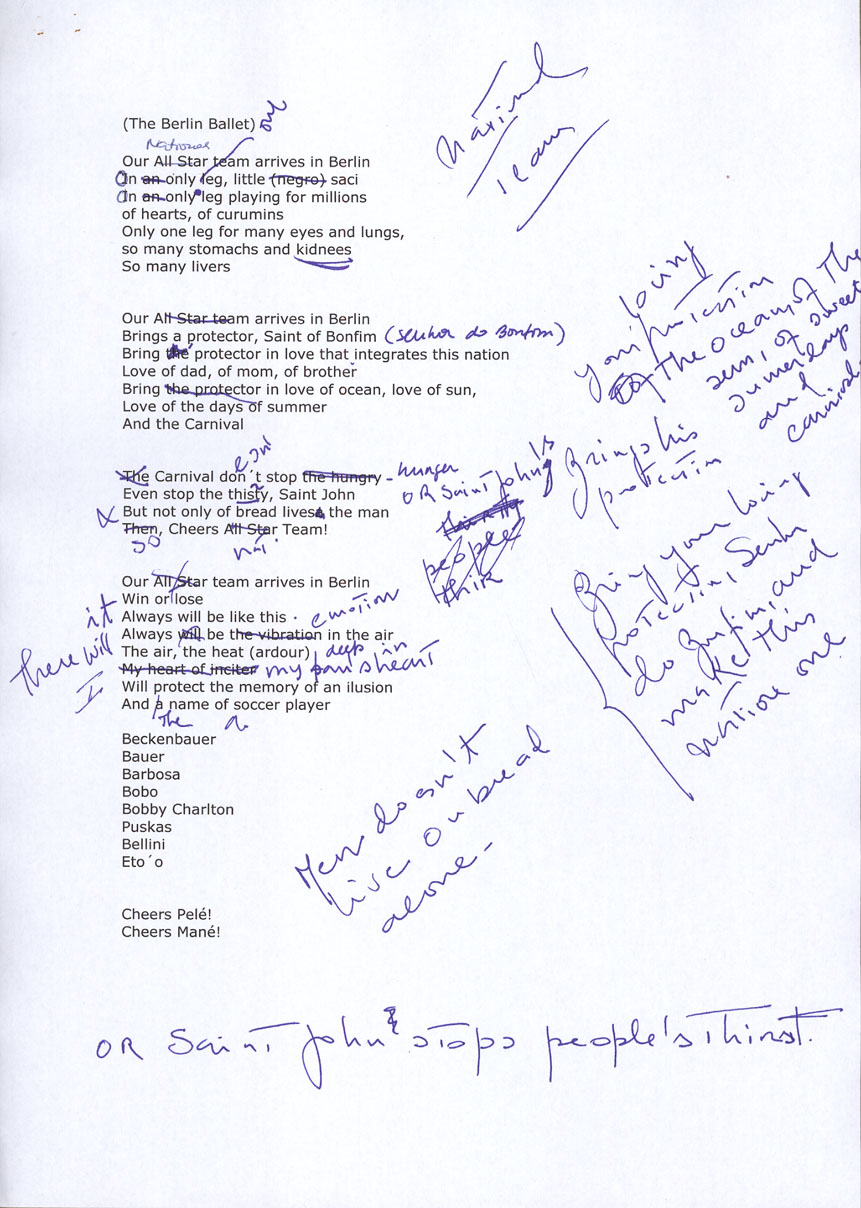 (The Berlin Ballet) one
National
Our All Star team arrives in Berlin
On an only leg, little (negro) saci
On an only leg playing for millions
of hearts, of curumins
Only one leg for many eyes and lungs,
so many stomachs and kidnees
So many livers
National
team
Our All Star team arrives in Berlin
Brings a protector, Saint of Bonfim (senhor do Bonfim)
Bring the protector in love that integrates this nation
Love of dad, of mom, of brother
Bring the protector in love of ocean, love of sun,
Love of the days of summer
And the Carnival
loving
your protection
the ocean, of the
sun, of sweet
summerdays
and
carnival
Brings his
protection
can't
The Carnival don´t stop the hungry - hunger
Even stop the thisty, Saint John OR Saint John's
But not only of bread lives the man
Then, Cheers All Star Team!
so nat.
people
think
Bring your loving
protection, Senhor
do Bonfim, and
make this
nation one
Our All Star team arrives in Berlin
Win or lose
it
Always will be like this emotion
there will
Always will be the vibration in the air
The air, the heat (ardour) deep in
My heart of inciter my fan's heart
I
Will protect the memory of an ilusion
And a name of soccer player
The a
Beckenbauer
Bauer
Barbosa
Bobo
Bobby Charlton
Puskas
Bellini
Eto´o
Men doesn't
live on bread
alone -
Cheers Pelé!
Cheers Mané!
OR Saint John stops people's thirst.